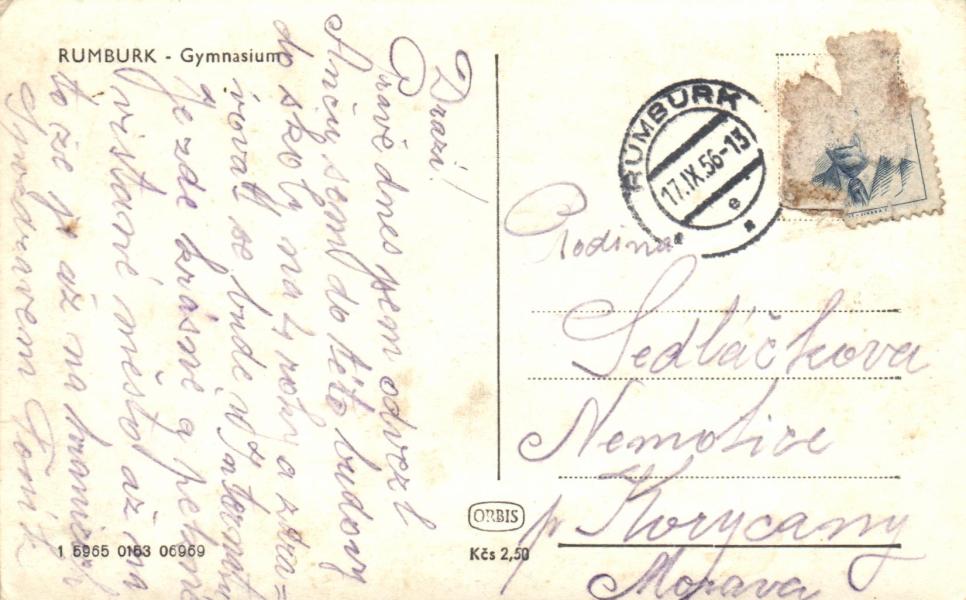 RUMBURK - Gymnasium
Drazí!
Právě dnes jsem odvezl
Anču sem do této budovy
do školy na 4 roky a stra=
vovat se bude v Internátu
Je zde krásně a pěkné
vistavné město až na
to že je až na hranicích
S pozdravem Toník
RUMBURK
17.IX.56-13
e
Rodina
Sedláčkova
Nemotice
p Koryčany
Morava
ORBIS
1 5965 0163 06969
Kčs 2,50